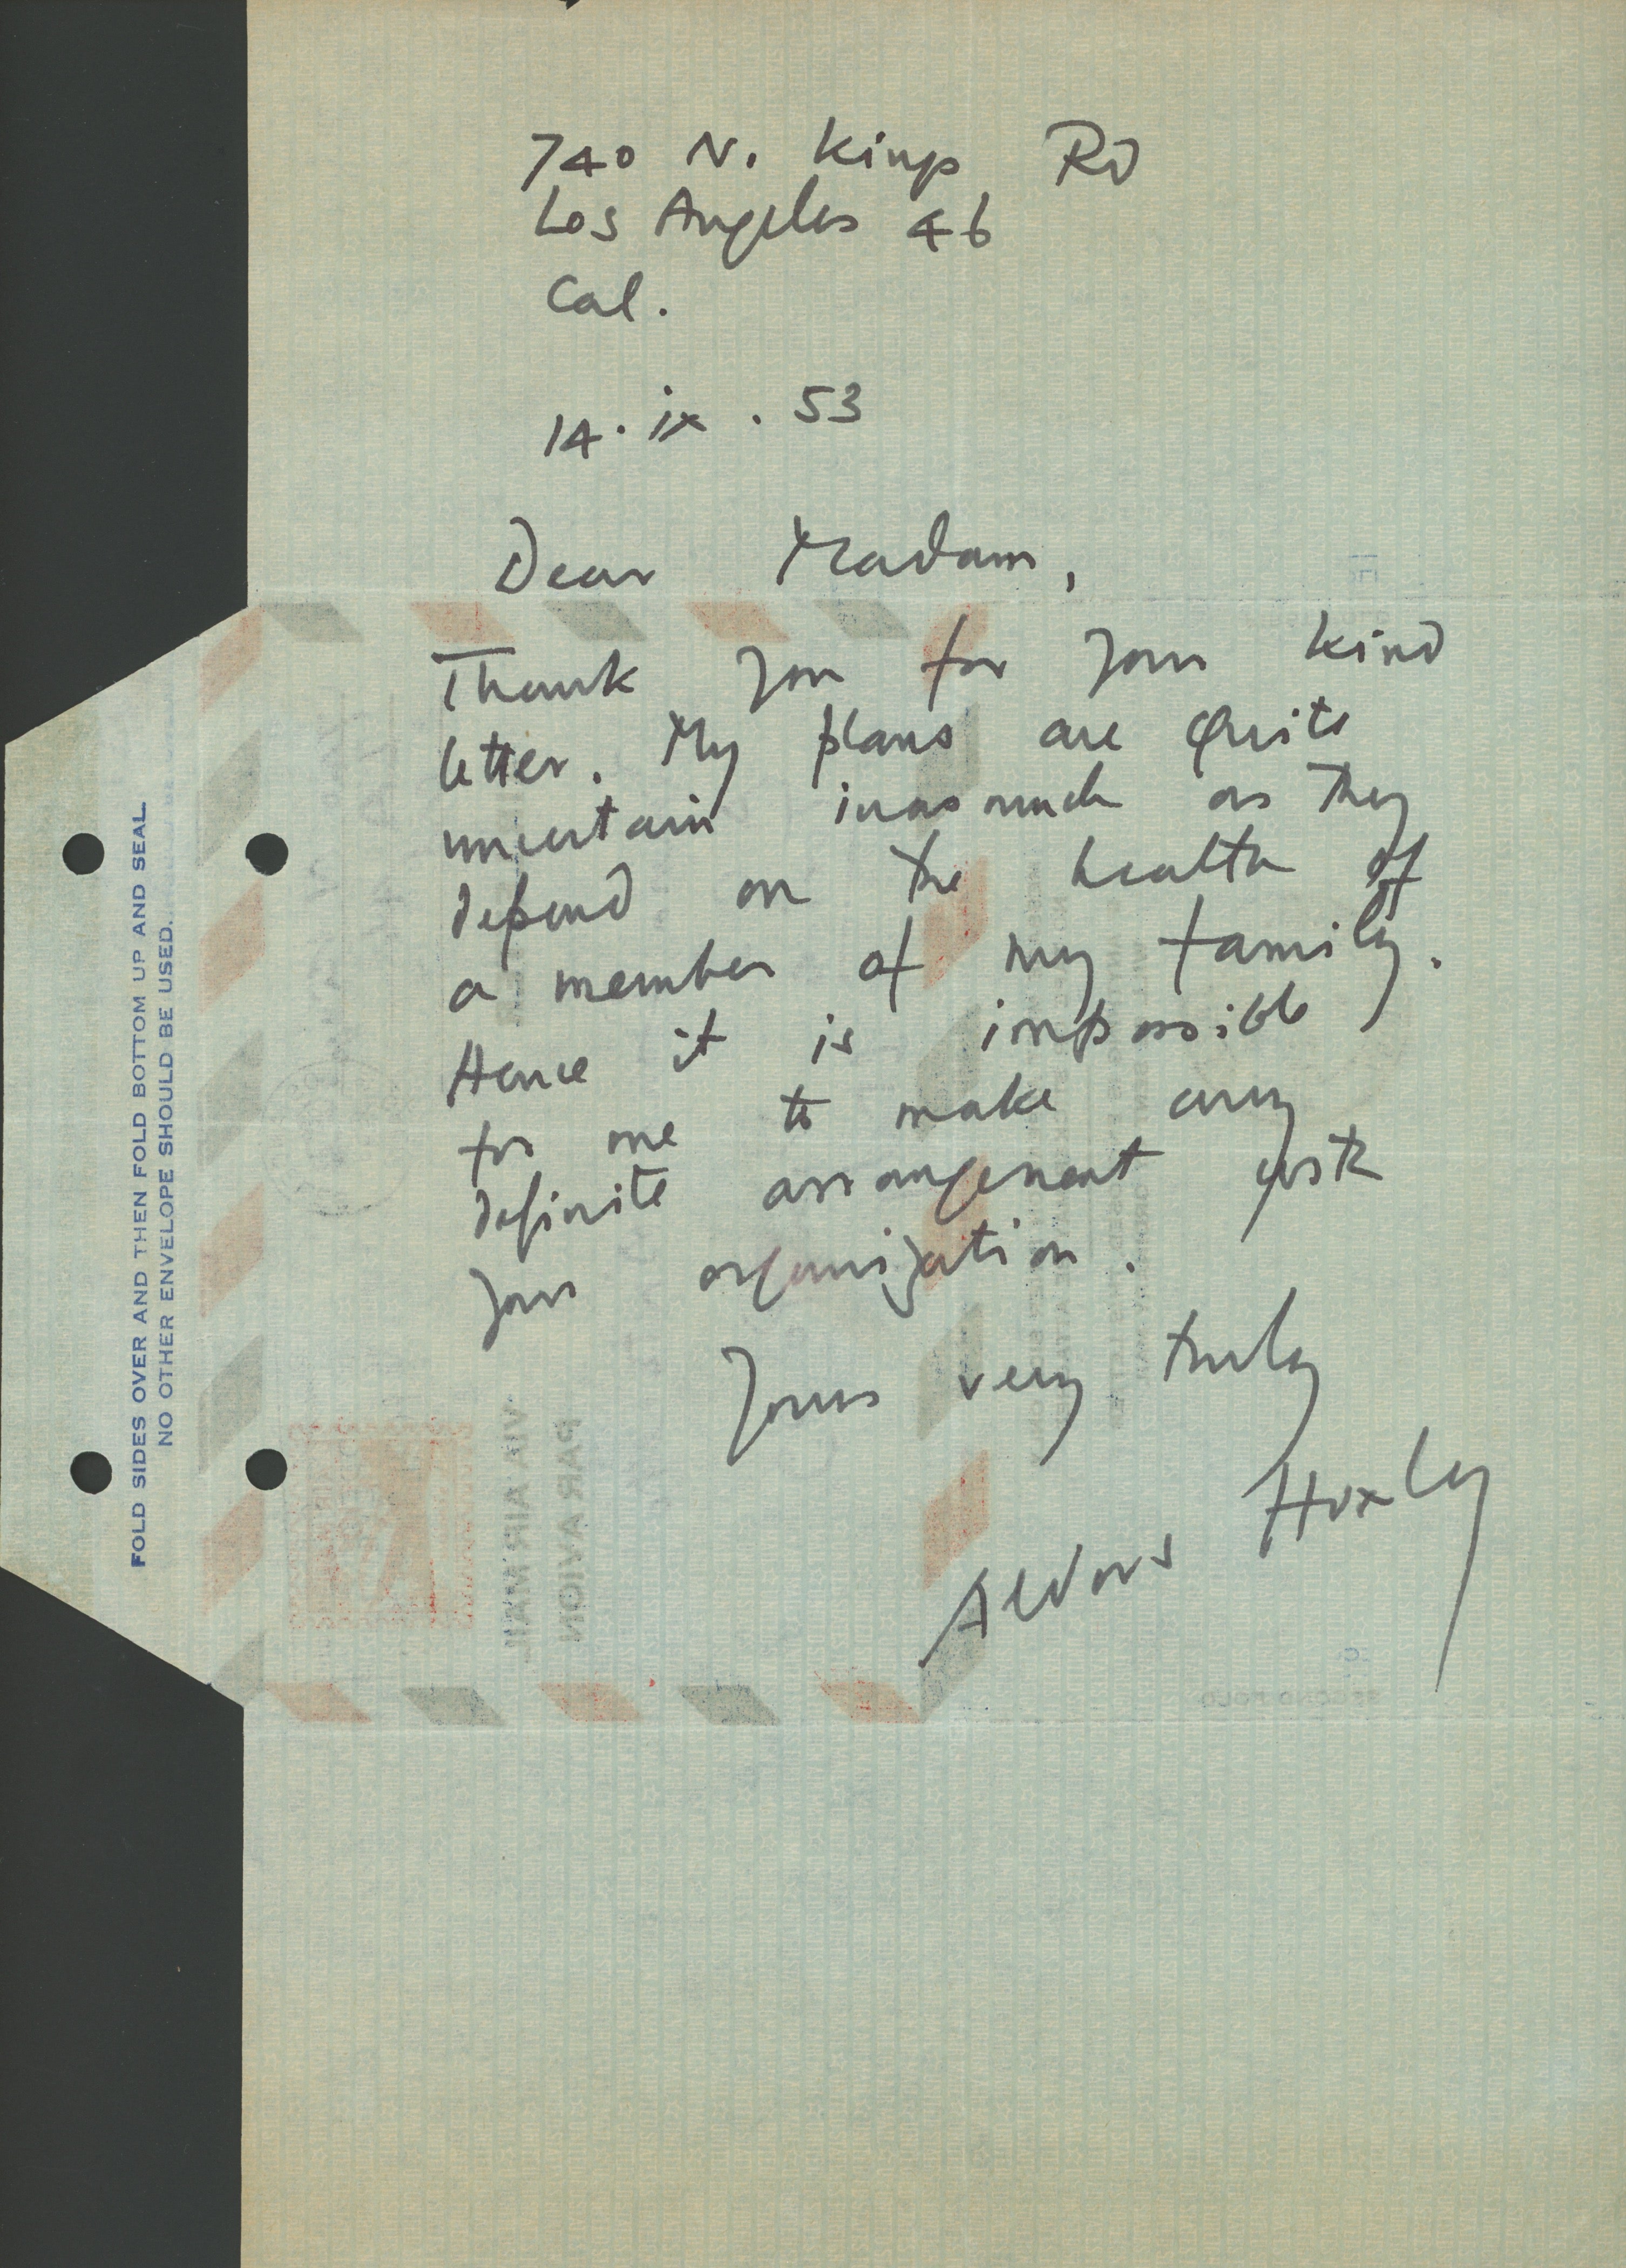 740 N. Kings Rd
Los Angeles 46
Cal.
14.ix.53
Dear Madam,
Thank you for your kind
letter. My plans are quite
uncertain inasmuch as they
depend on the health of
a member of my family.
Hence it is impossible
for me to make any
definite arrangement with
your organization.
Yours very truly
Aldous Huxley
FOLD SIDES OVER AND THEN FOLD BOTTOM UP AND SEAL
NO OTHER ENVELOPE SHOULD BE USED.
VIA AIR MAIL
PAR AVION
SECOND FOLD